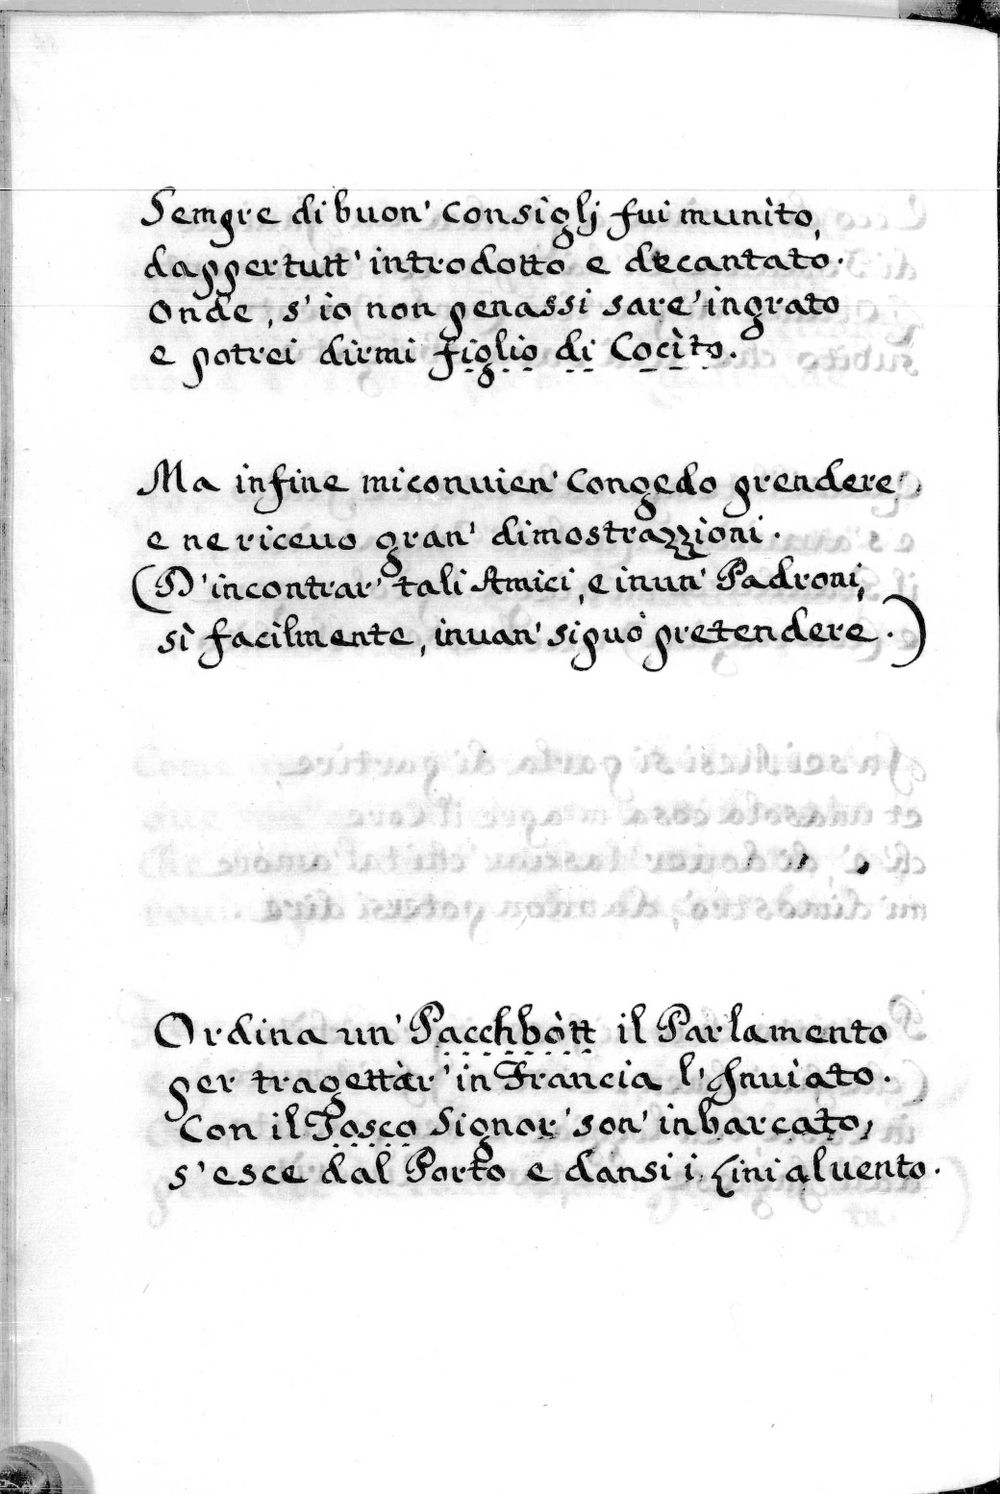 Sempre di buon' Consiglj fui munìto,
dappertutt' introdotto e decantato.
Onde, s'io non penassi sare' ingrato
e potrei dirmi figlio di Cocìto.
Ma infine mi conuien' Congedo prendere,
e ne riceuo gran' dimostrazzioni.
(D'incontrar' tali Amici, e in un' Padroni,
sì facilmente, inuan' si può pretendere.)
Ordina un' Pacchbòtt il Parlamento
per tragettàr' in Francia l'Inuiato.
Con il Tosco Signor' son' inbarcato,
s'esce dal Porto e dansi i Lini al uento.